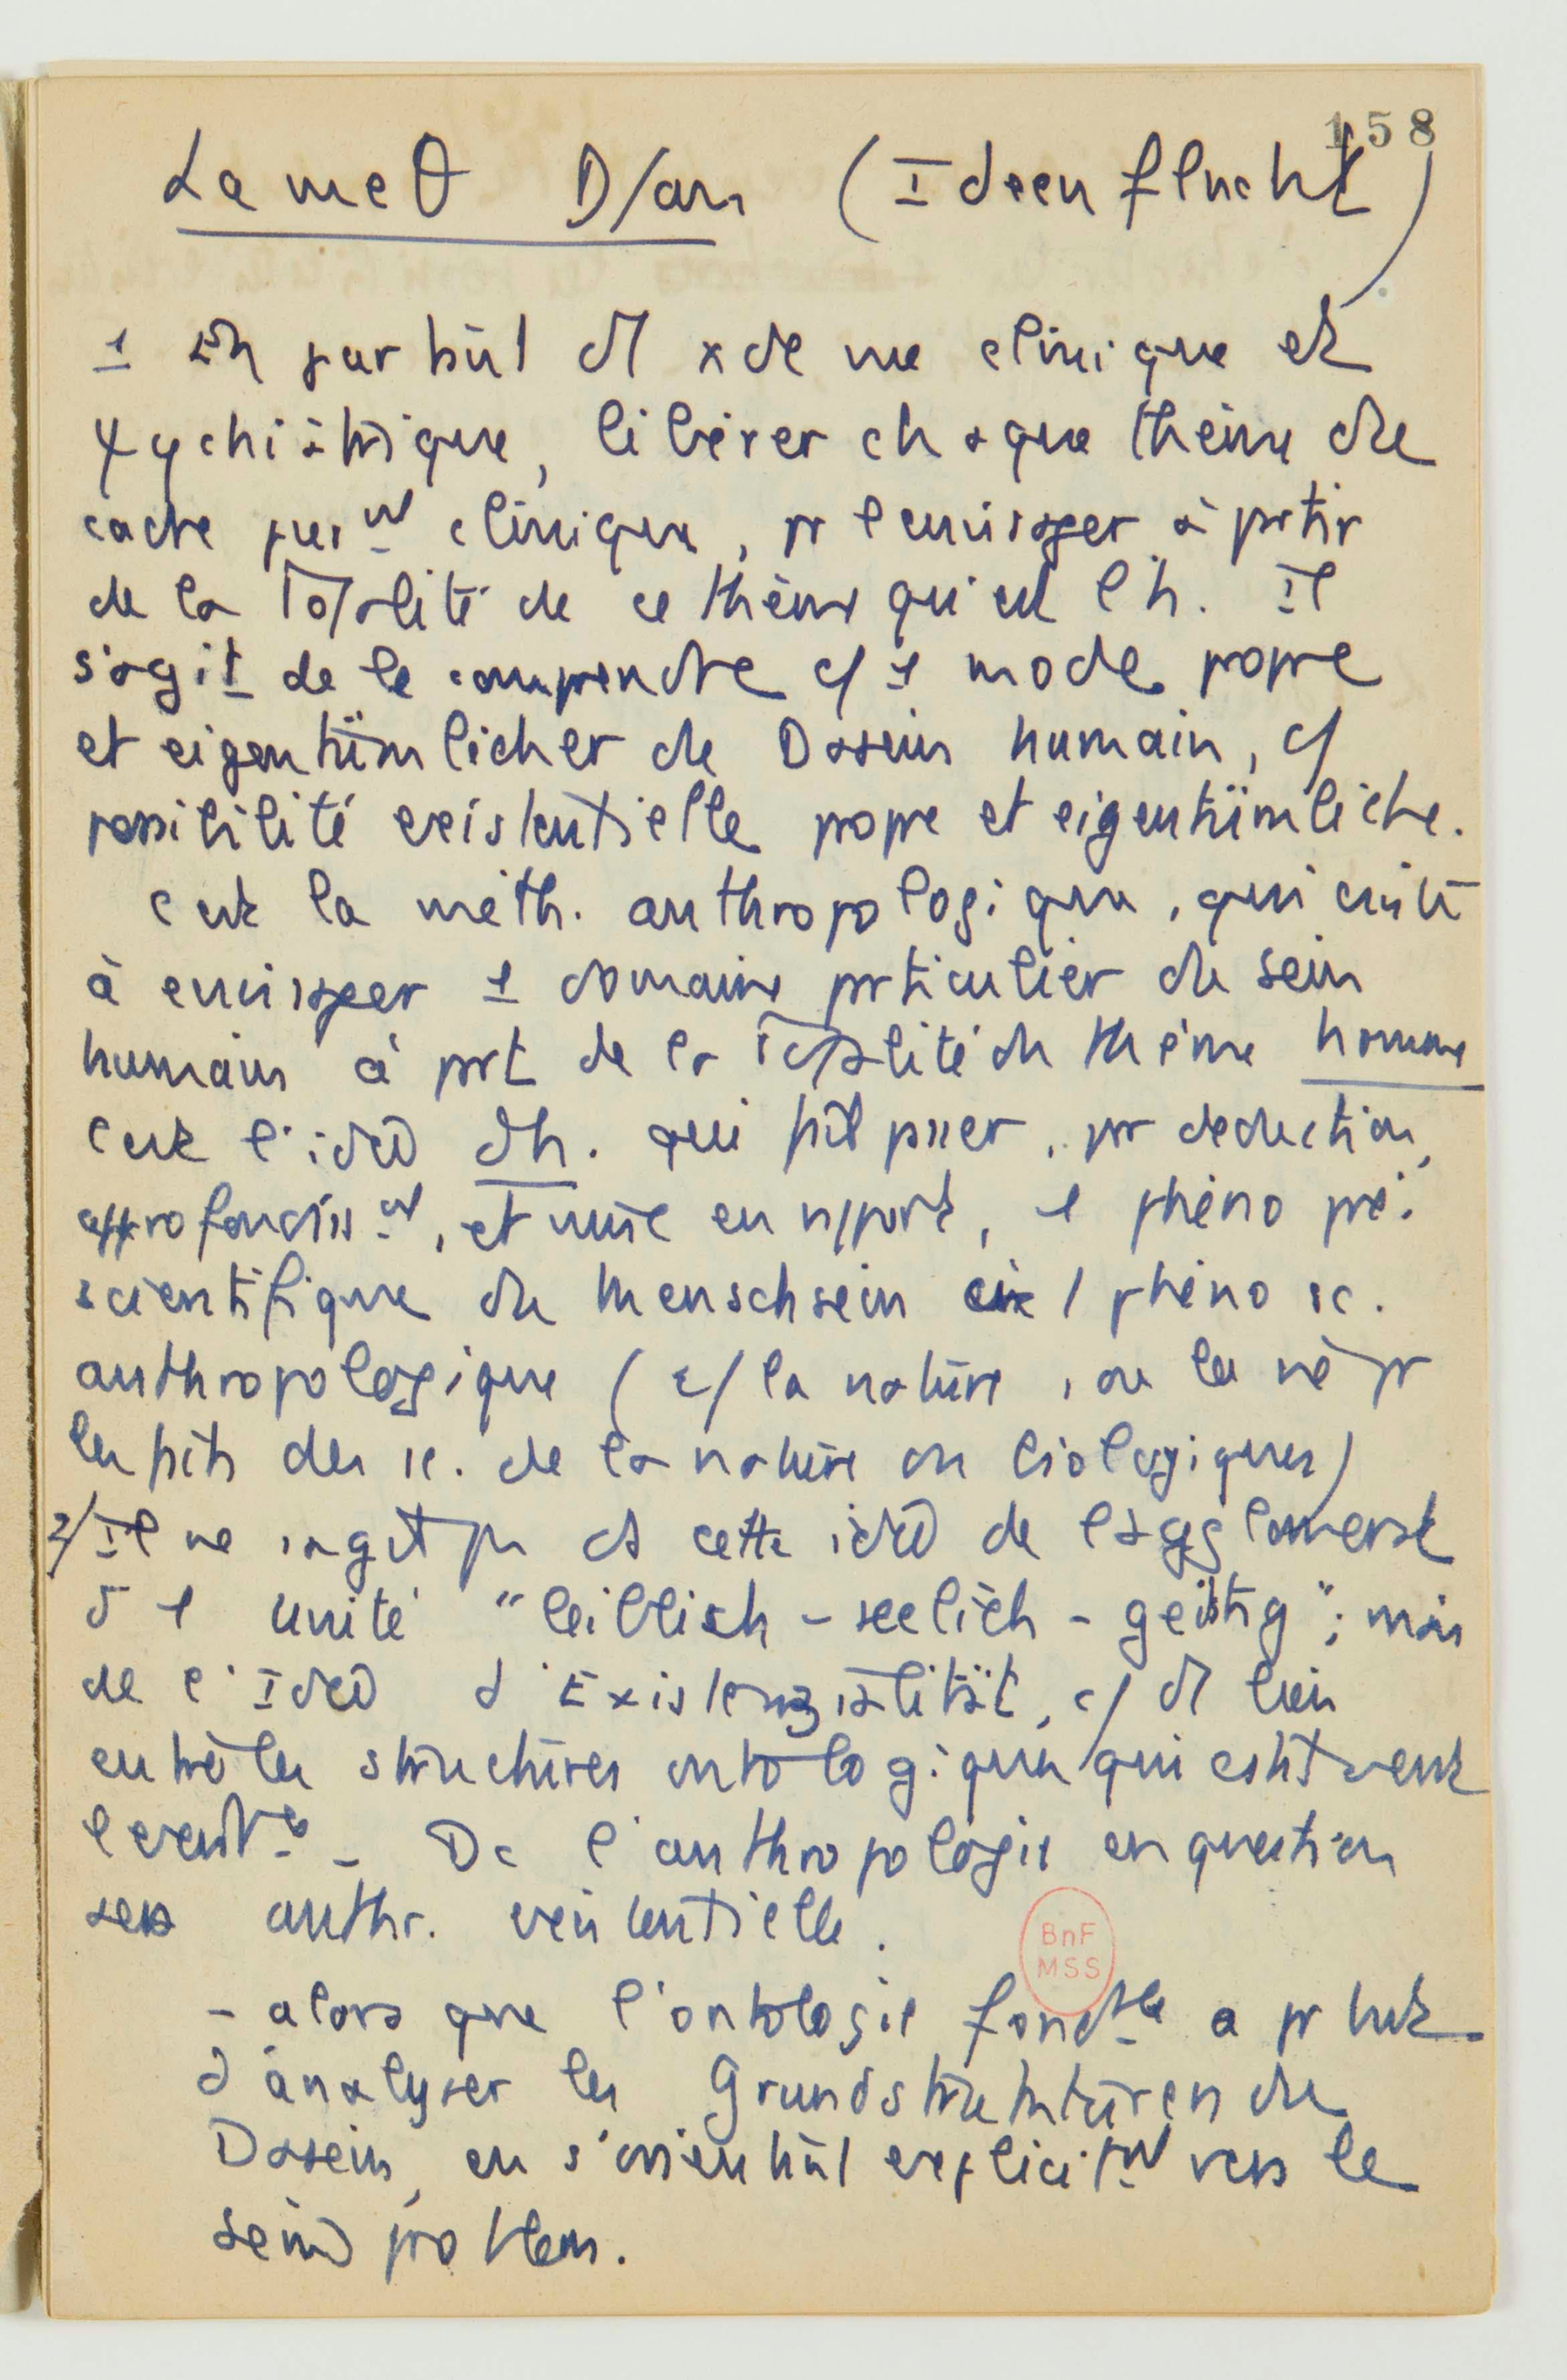 158
La met θ D/an (Ideenflucht)
1 En partant d'1 x de vue clinique et
ψychiatrique, libérer chaque thème du
cadre purnt clinique, pr l'envisager à partir
de la totalité de ce thème qu'est l'h. Il
s'agit de le comprendre c/ 1 mode propre
et eigentümlicher de Dasein humain, c/
possibilité existentielle propre et eigentümliche.
C'est la méth. anthropologique, qui csiste
à envisager 1 domaine prticulier du sein
humain à prt de la totalité du thème homme
C'est l'idée d'h. qui fait psser, pr deduction,
approfondisst, et mise en rpport, 1 phéno pré.
scientifique du Menschsein en 1 phéno sc.
anthropologique (c/ la nature, ou la vie pr
les faits des sc. de la nature ou biologiques)
2/ Il ne s'agit ps ds cette idée de l'agglomerat
d'1 unité "leiblich - seelich - geistig"; mais
de l'Idée d'Existenzialität, c/ d'1 lien
entre les structures ontologiques qui cstituent
l'exist. - Dc l'anthropologie en question
sera anthr. existentielle.
- alors que l'ontologie fondtale a pr but
d'analyser les Grundstrukturen du
Dasein, en s'orientant explicitnt vers le
seinsproblem.
BnF
MSS